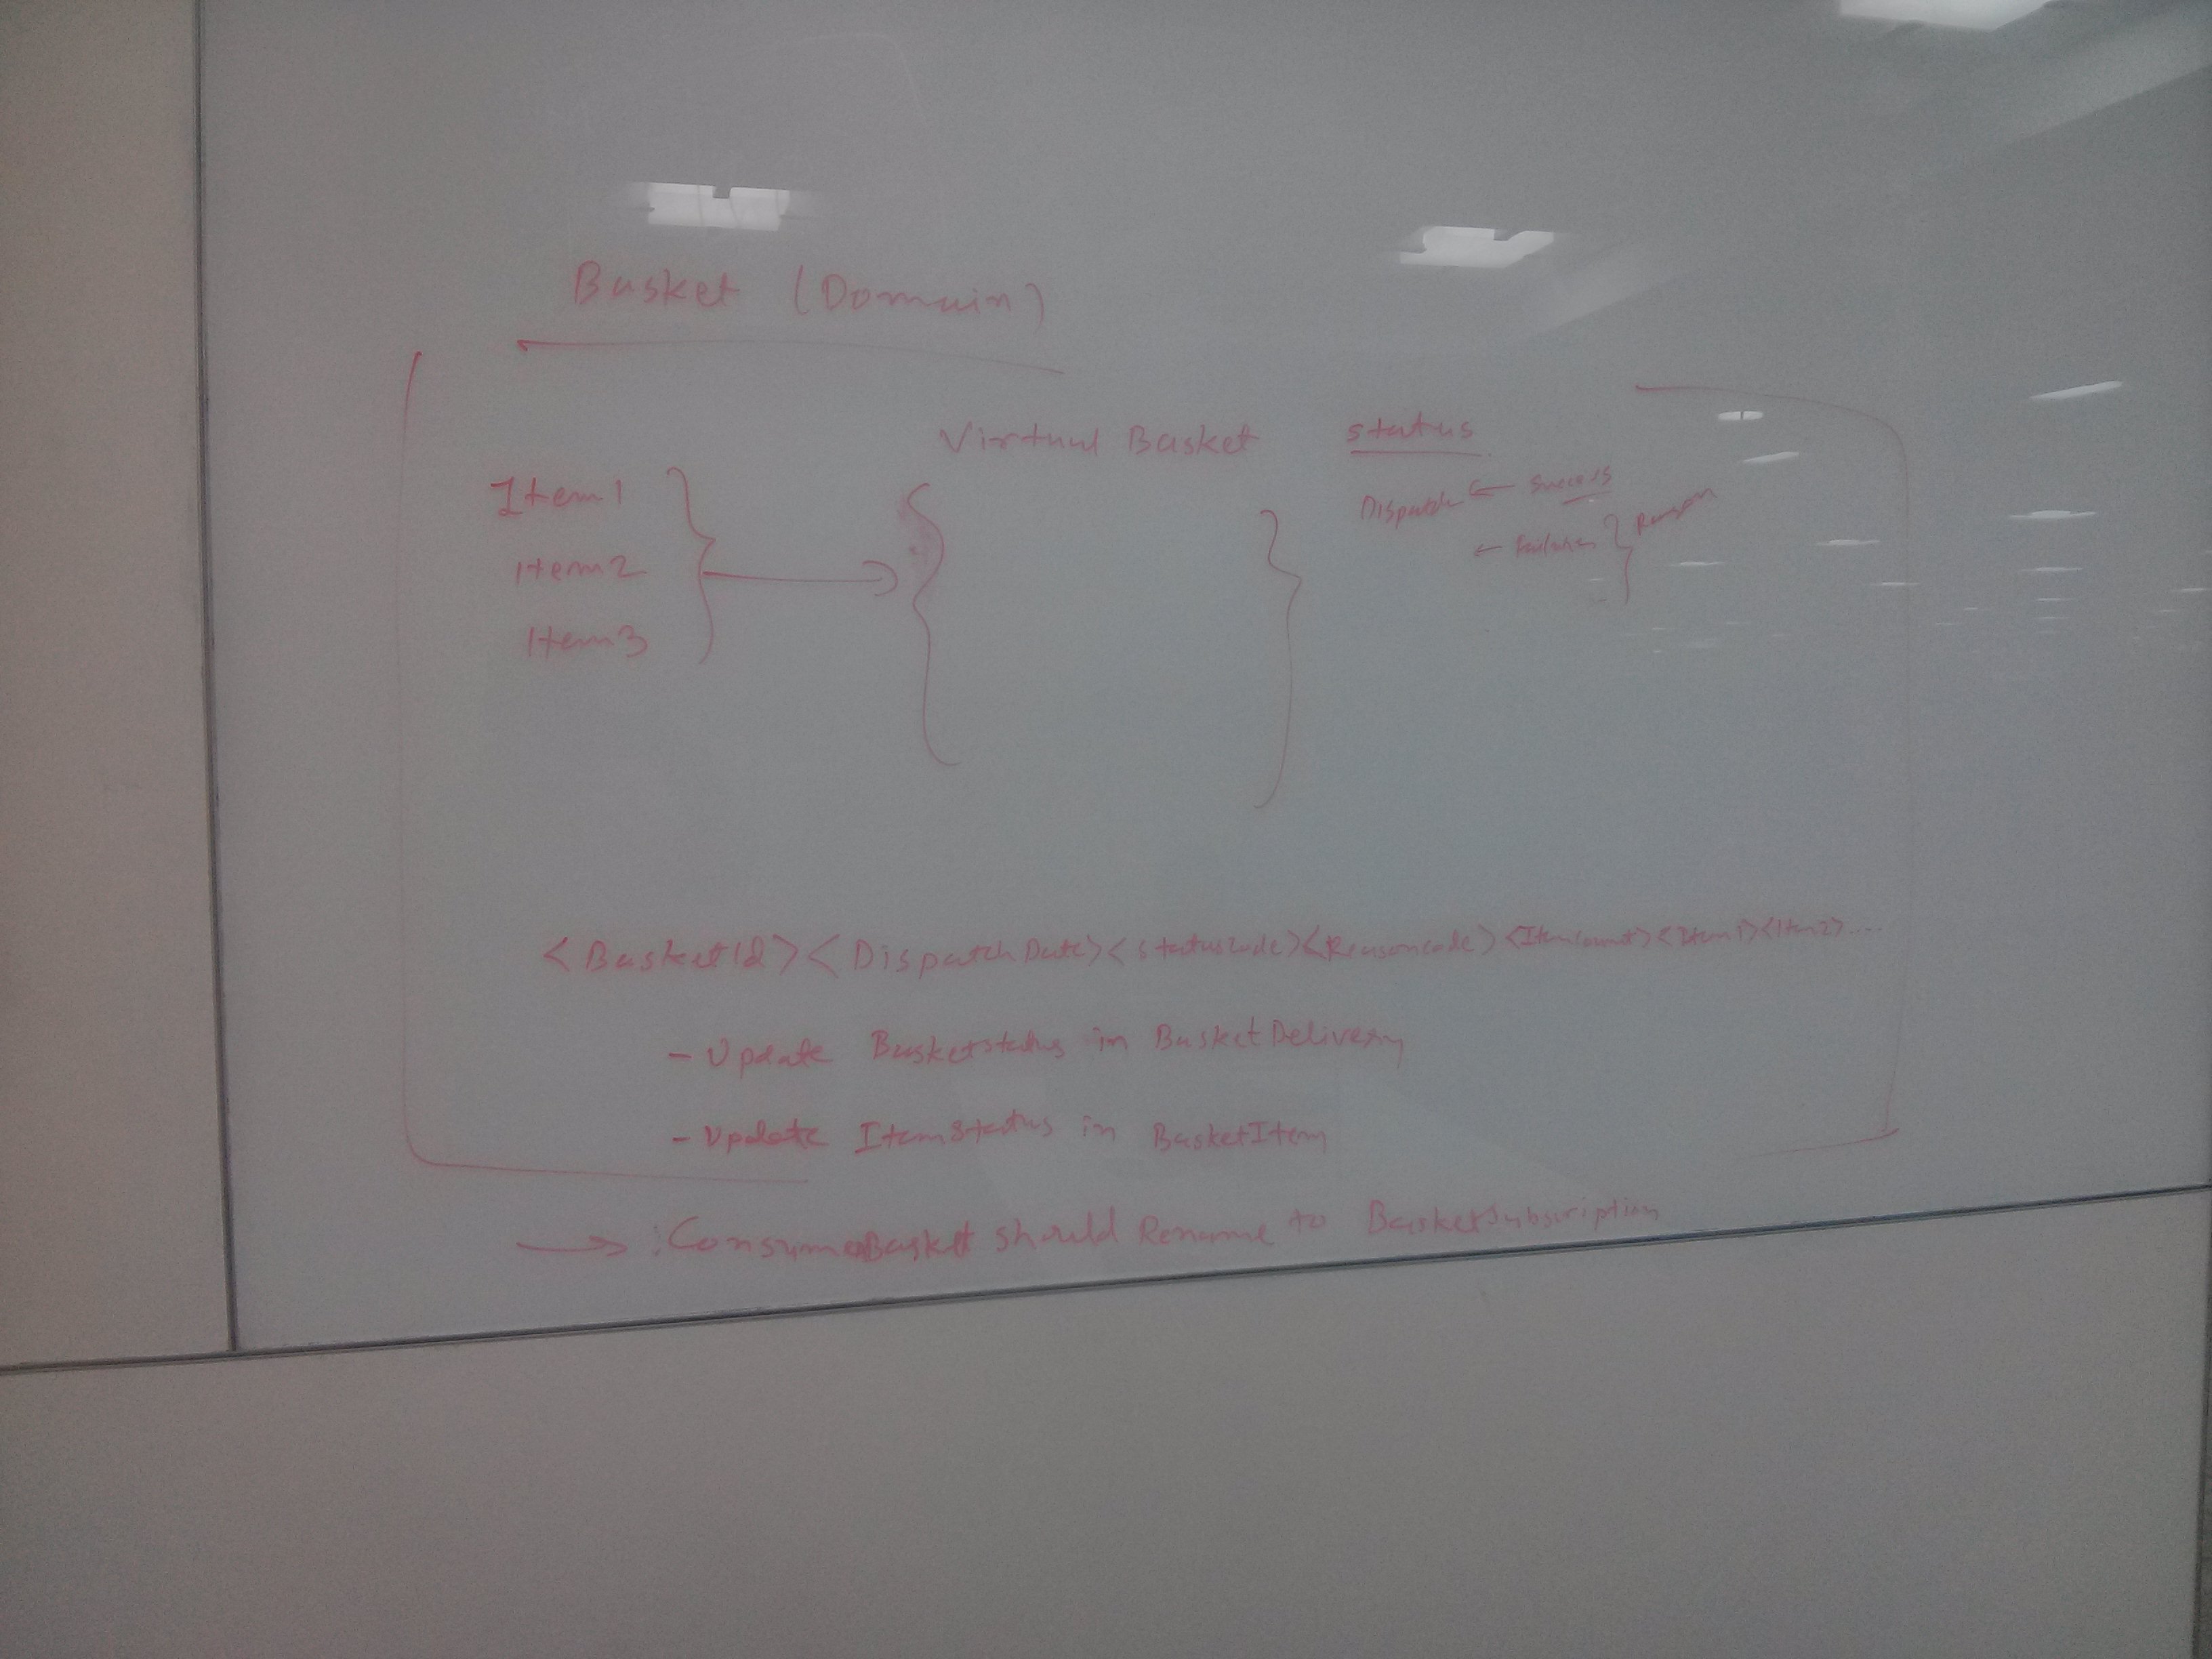 Basket (Domain)
Virtual Basket
status
Item1
Item2
Item3
Dispatch ← Success
← Failure } Reason
<BasketId><DispatchDate><statuscode><Reasoncode><Itemcount><Item1><Item2>....
- Update Basketstatus in BasketDelivery
- Update ItemStatus in BasketItem
→ : ConsumerBasket should Rename to BasketSubscription